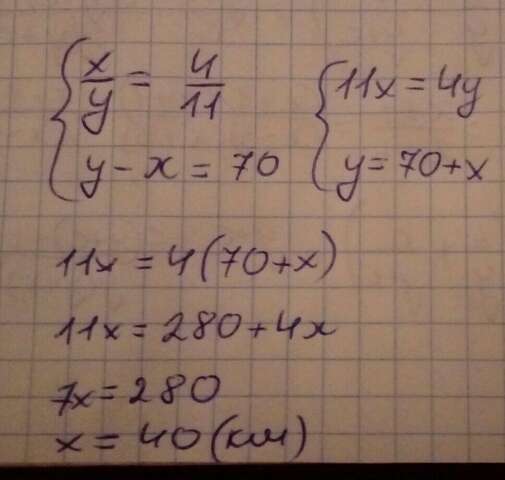 x/y = 4/11    11x = 4y
y - x = 70    y = 70 + x
11x = 4(70+x)
11x = 280 + 4x
7x = 280
x = 40 (км)